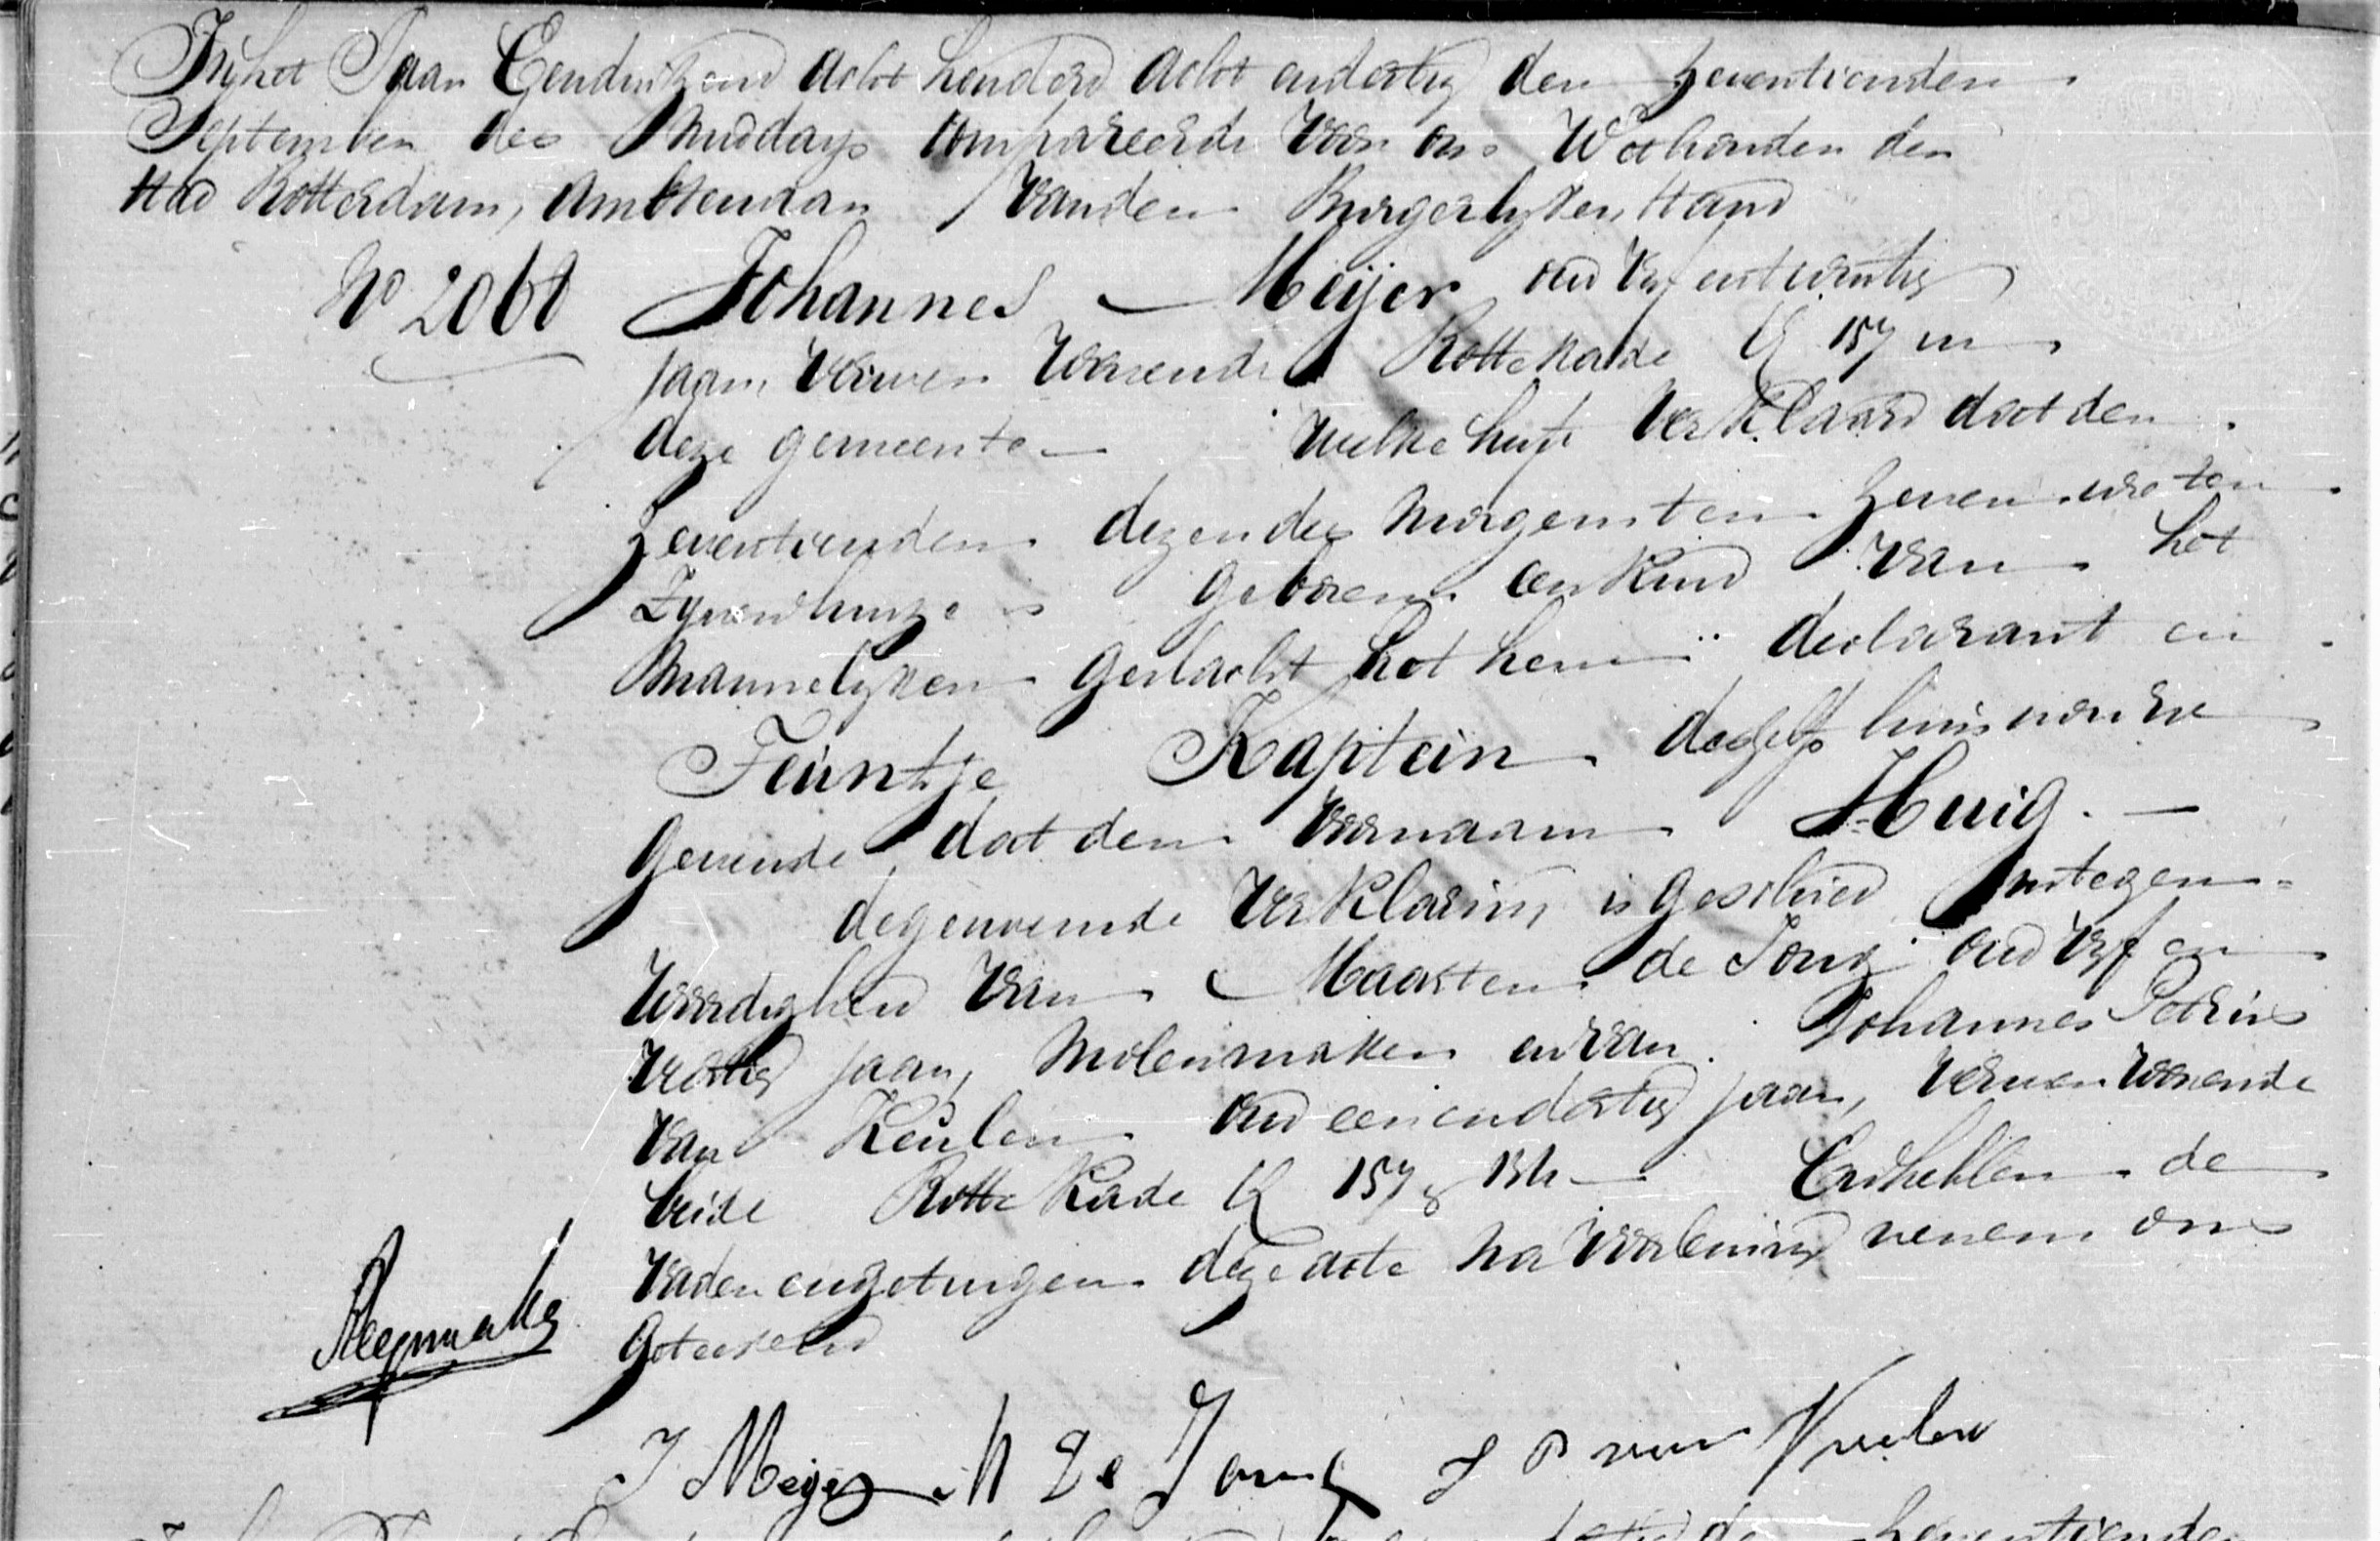 In het Jaar Eenduizend acht honderd acht en dertig den Zeventienden
September des Middags compareerde voor ons Wethouder der
stad Rotterdam, Ambtenaar van den Burgerlyken stand
No 2060 Johannes Meijer oud vyf en twintig
jaar, Verwer wonende Rottekade Q 157 in
deze gemeente welke heeft Verklaard dat den
Zeventienden dezer des Morgens ten Zeven ure ten
Zynen huize is geboren een Kind van het
Mannelyken geslacht het hem declarant en
Teuntje Kaptein deszelfs huisvrouw
gevende dat den voornaam Huig.
deze genoemde Verklaring is geschied in tegen-
woordigheid van Maarten de Jong oud vyf en
veertig jaar, Molenmaker en van Johannes Petrus
van Keulen oud een en dertig jaar, Verwer wonende
beide Rotte Kade Q 157 & En hebben de
Vader en getuigen deze acte na voorlezing nevens ons
getekend
J Meijer M de Jong J P van Keulen